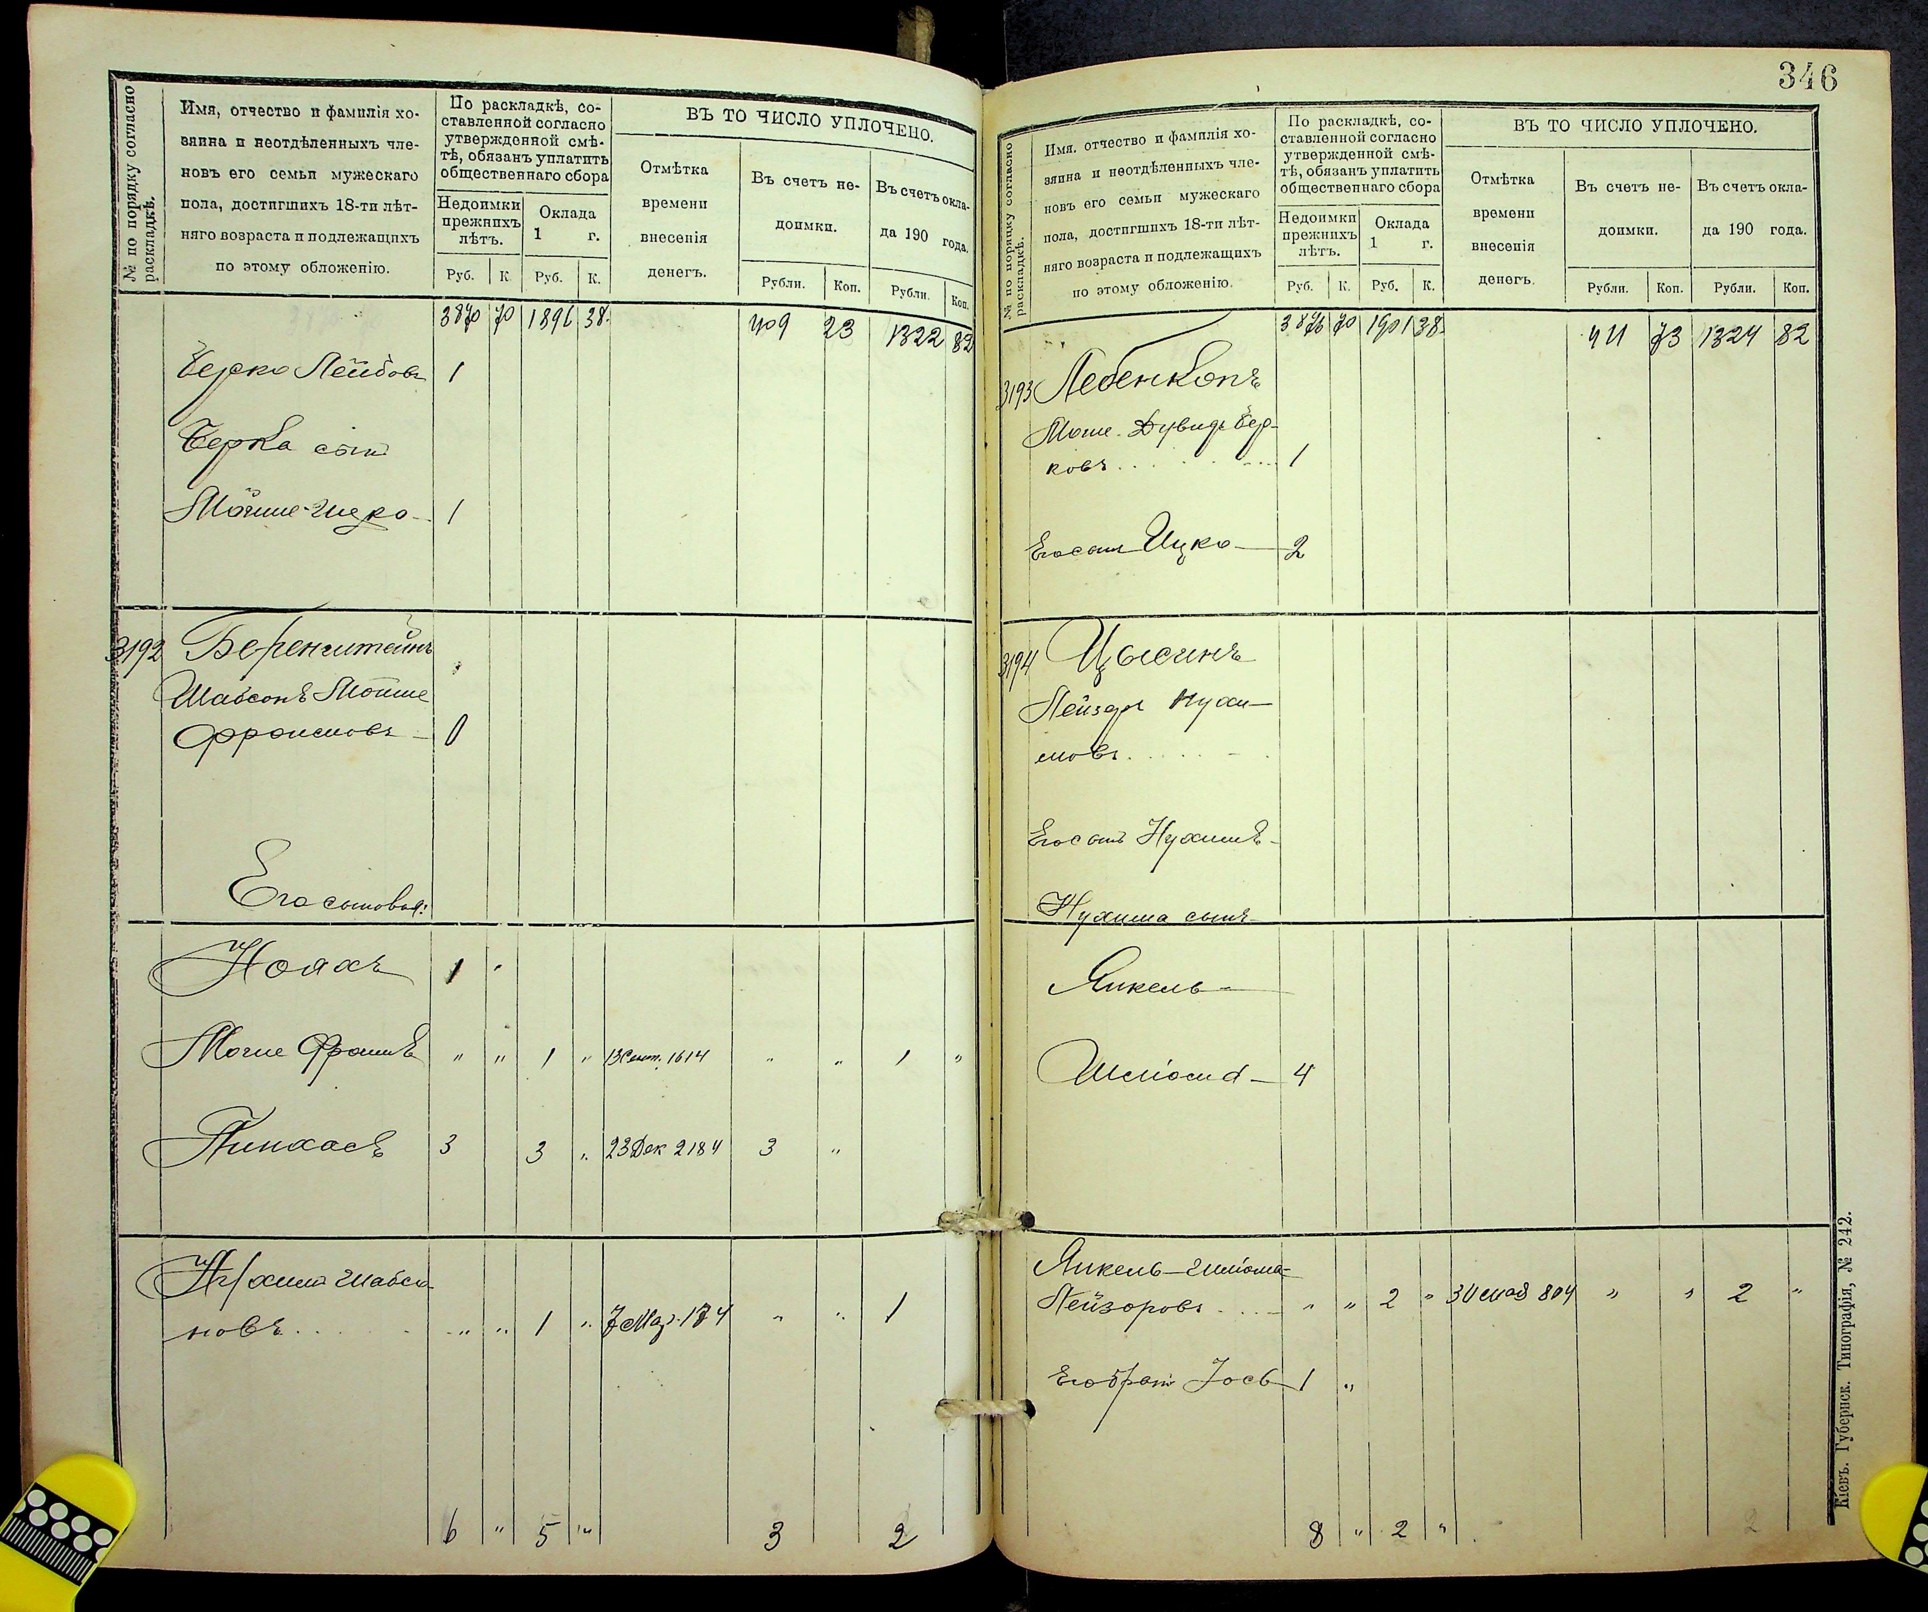 № по порядку согласно раскладкѣ.
Имя, отчество и фамилія хо-
зяина и неотдѣленныхъ чле-
новъ его семьи мужескаго
пола, достигшихъ 18-ти лѣт-
няго возраста и подлежащихъ
по этому обложенію.
По раскладкѣ, со-
ставленной согласно
утвержденной смѣ-
тѣ, обязанъ уплатить
общественнаго сбора
Недоимки
прежнихъ
лѣтъ.
Оклада
1 г.
Руб. К. Руб. К.
ВЪ ТО ЧИСЛО УПЛОЧЕНО.
Отмѣтка
времени
внесенія
денегъ.
Въ счетъ не-
доимки.
Въ счетъ окла-
да 190 года.
Рубли. Коп. Рубли. Коп.
3870 70 1896 38 409 23 1322 82
Берко Лейбовъ 1
Берка сынъ
Мойше-Ицко 1
3192 Беренштейнъ
Шабсонъ Мойше
Фроимовъ 0
Его сыновья:
Ноахъ 1 "
Моше Фроимъ " " 1 " 13 Сент. 1614 " " 1 "
Пинхасъ 3 3 " 23 Дек 2184 3 "
Нухимъ Шабсо-
новъ " " 1 " 7 Мар. 174 " " 1
6 " 5 " 3 2
346
№ по порядку согласно раскладкѣ.
Имя, отчество и фамилія хо-
зяина и неотдѣленныхъ чле-
новъ его семьи мужескаго
пола, достигшихъ 18-ти лѣт-
няго возраста и подлежащихъ
по этому обложенію.
По раскладкѣ, со-
ставленной согласно
утвержденной смѣ-
тѣ, обязанъ уплатить
общественнаго сбора
Недоимки
прежнихъ
лѣтъ.
Оклада
1 г.
Руб. К. Руб. К.
ВЪ ТО ЧИСЛО УПЛОЧЕНО.
Отмѣтка
времени
внесенія
денегъ.
Въ счетъ не-
доимки.
Въ счетъ окла-
да 190 года.
Рубли. Коп. Рубли. Коп.
3876 70 1901 38 411 73 1324 82
3193 Лебенкопъ
Моше-Дувидъ Бер-
ковъ 1
Его сынъ Ицко 2
3194 Цысинъ
Лейзоръ Нухи-
мовъ
Его сынъ Нухимъ
Нухима сынъ
Янкель
Шліома 4
Янкель-Шліома
Лейзоровъ " " 2 " 30 мая 804 " " 2 "
Его братъ Іось 1 "
8 " 2 " 2
Кіевъ. Губернск. Типографія, № 242.